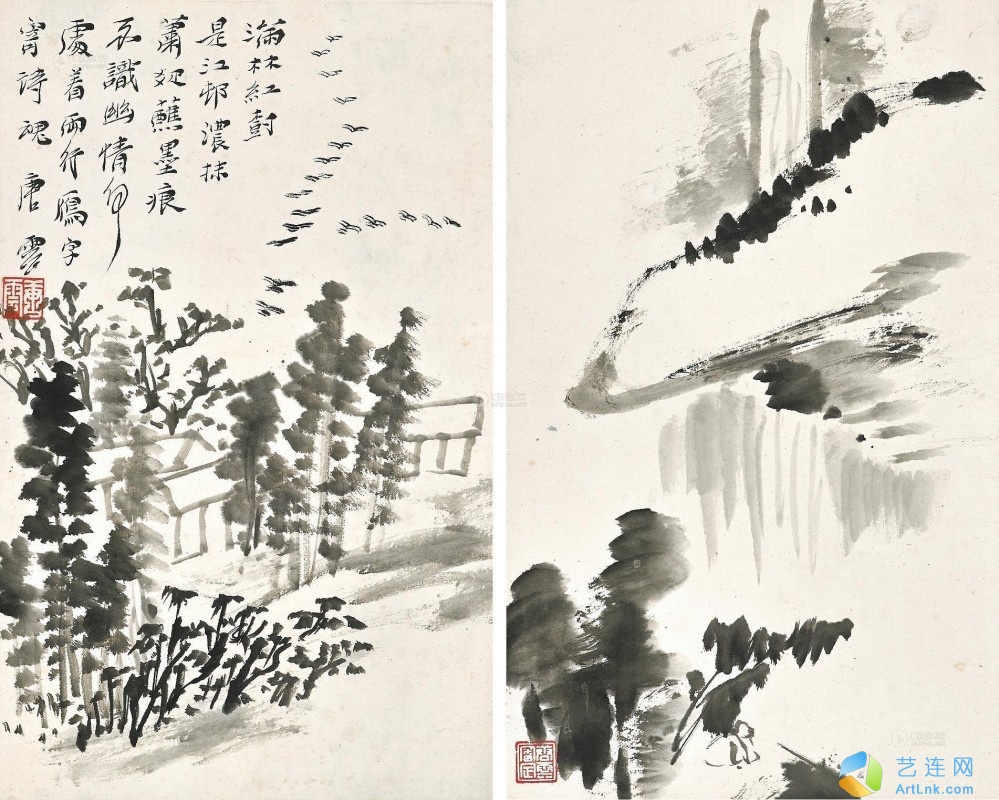 滿林紅樹
是江邨濃抹
蕭疎蘸墨痕
不識幽情何
處着兩行鴈字
寄詩魂 唐雲
艺连网
ArtLnk.com